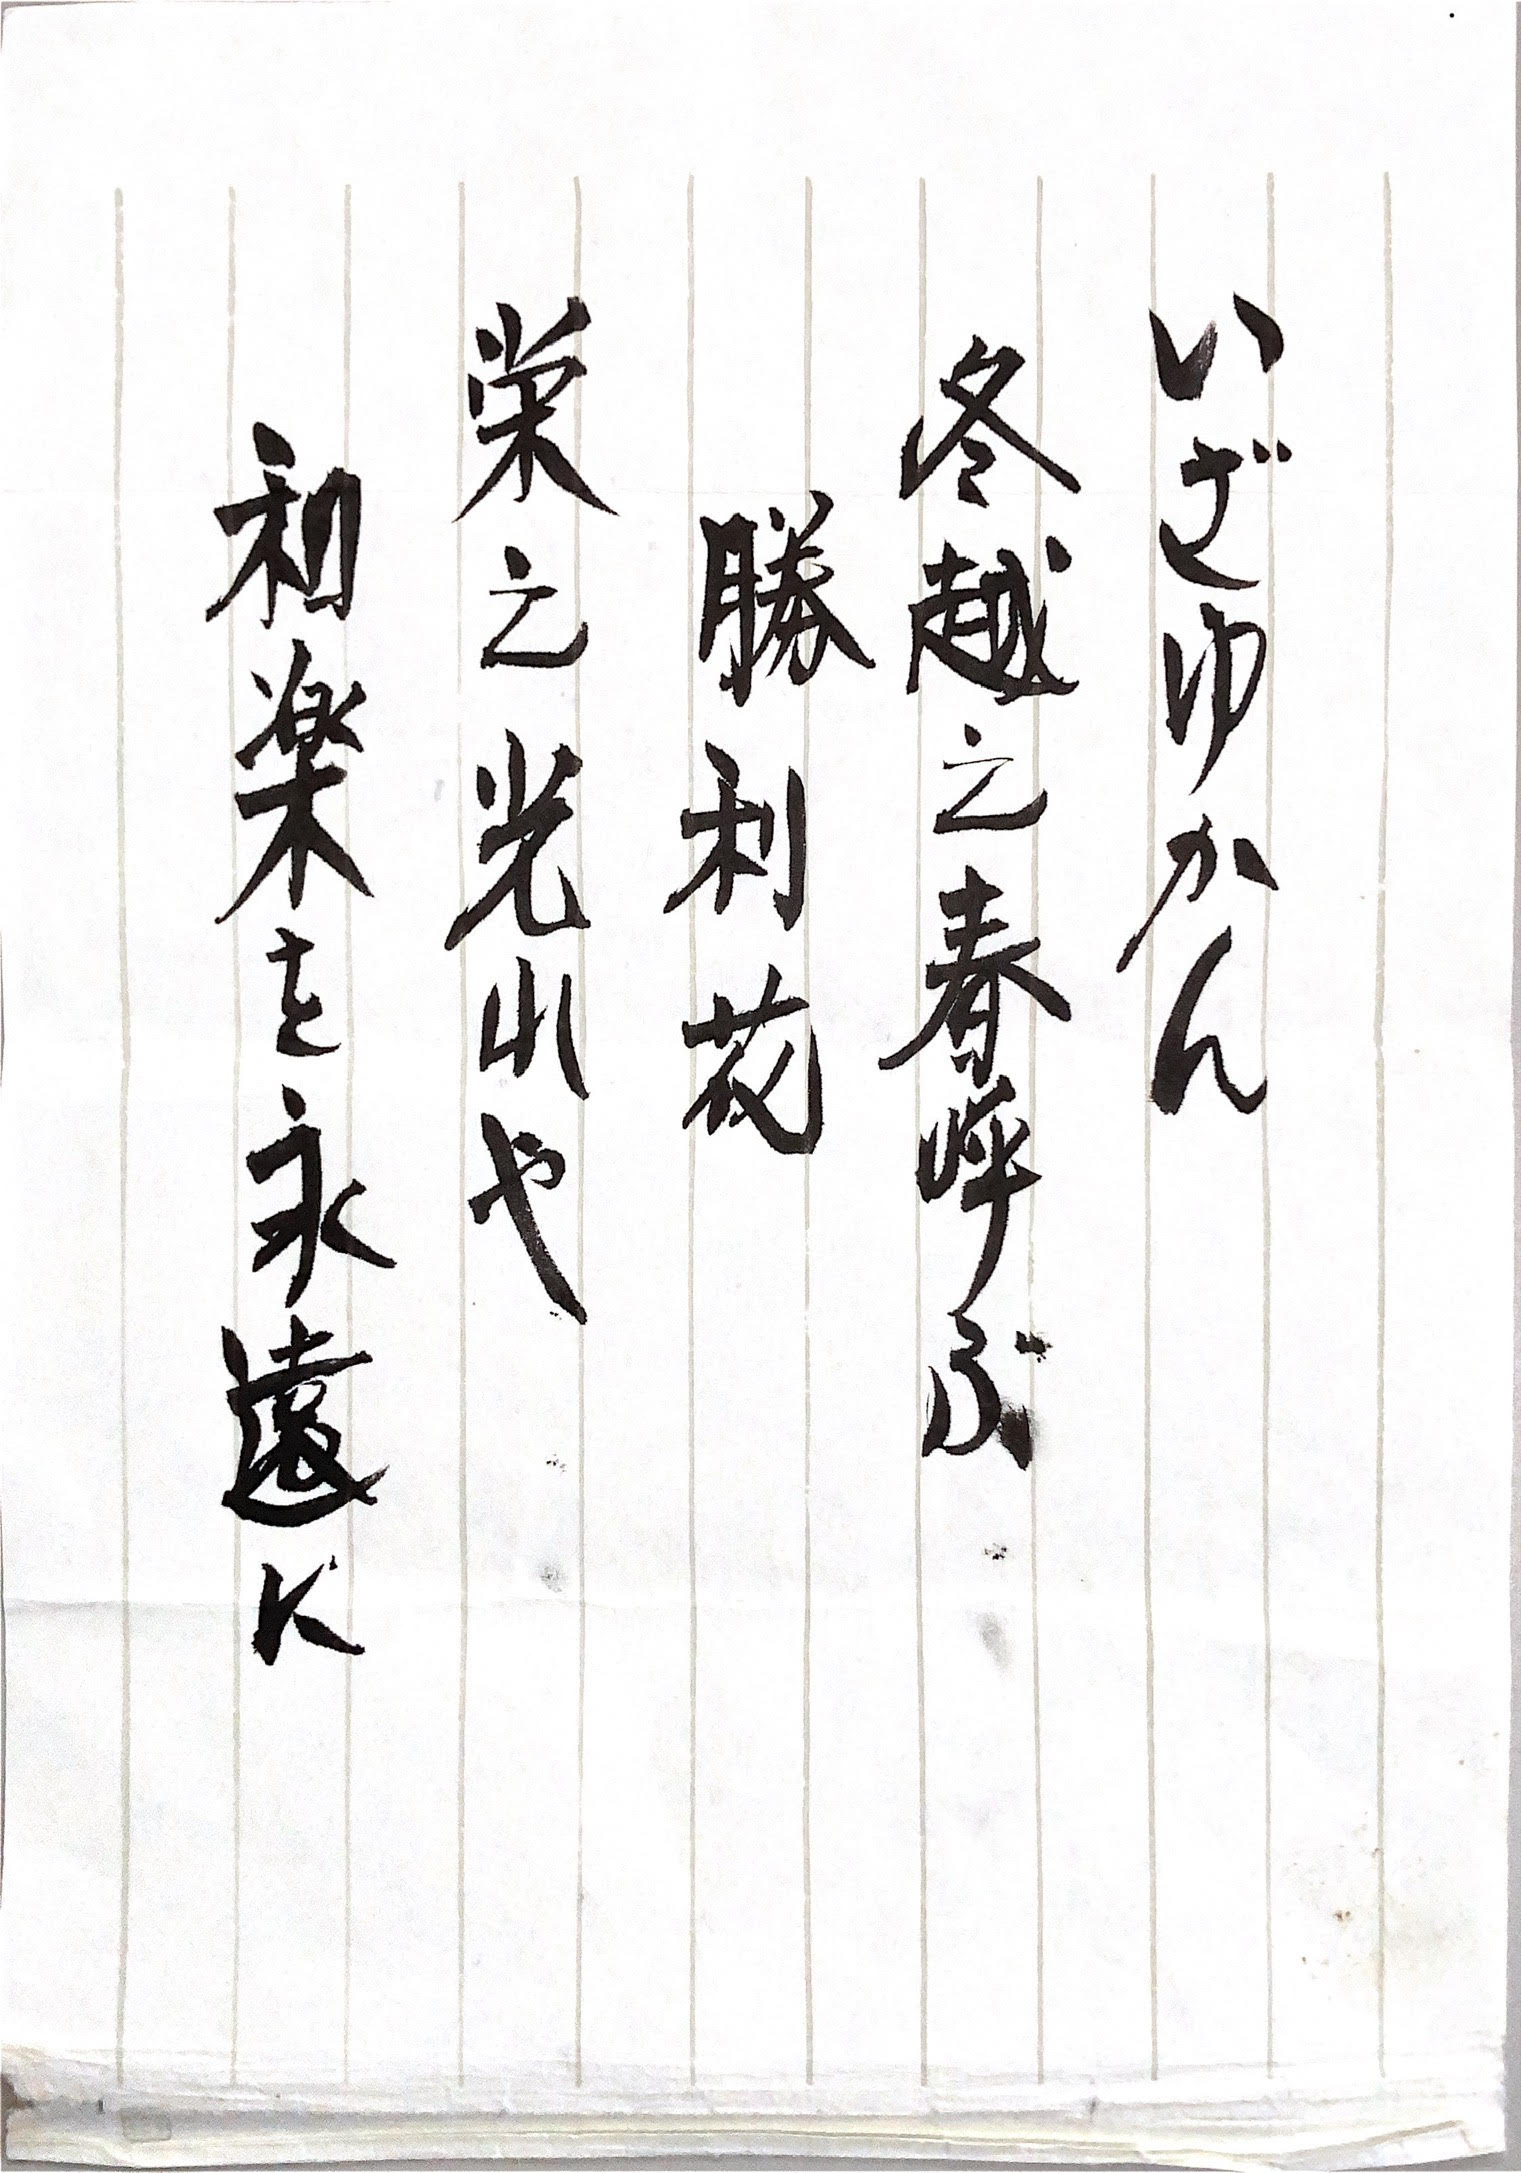 いざゆかん
冬越え春呼ぶ
勝利花
栄え光れや
和楽を永遠に